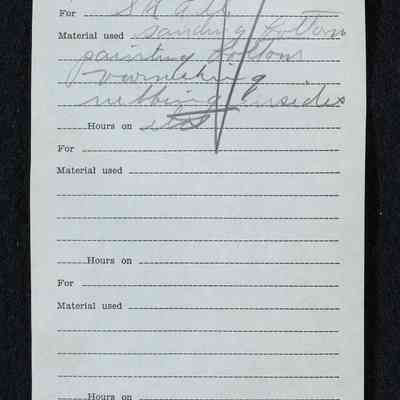 For
Material used sanding bottom
painting bottom
varnishing
rubbing insides
Hours on
For
Material used
Hours on
For
Material used
Hours on